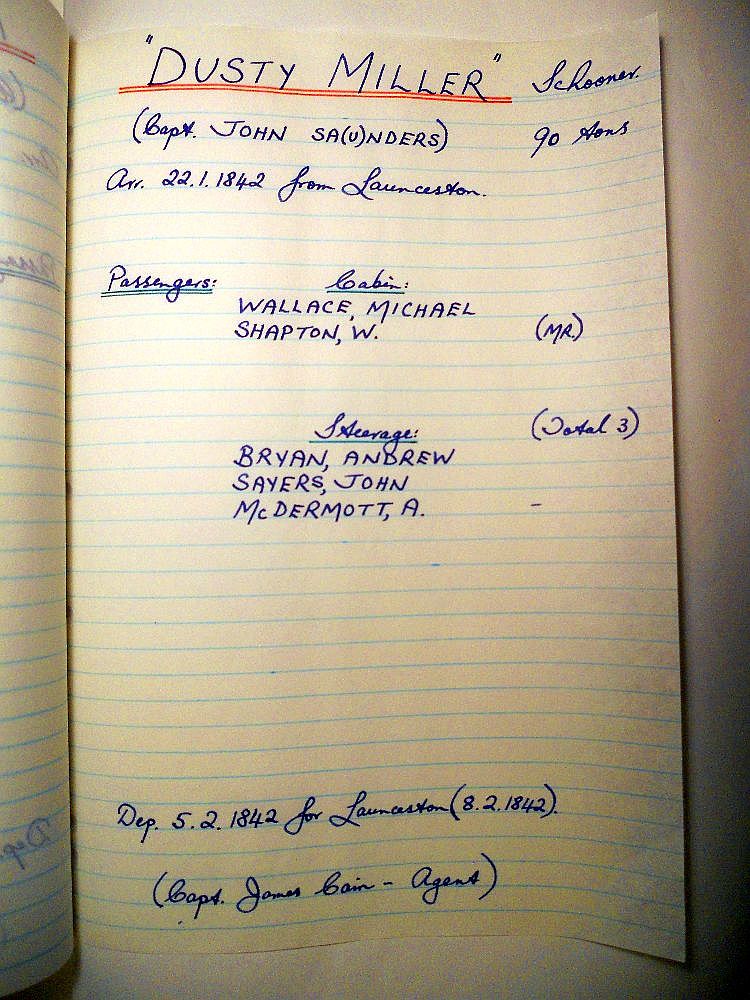 "DUSTY MILLER" Schooner.
(Capt. JOHN SA(U)NDERS) 90 tons
Arr. 22.1.1842 from Launceston.
Passengers: Cabin:
WALLACE, MICHAEL
SHAPTON, W. (MR.)
Steerage: (Total 3)
BRYAN, ANDREW
SAYERS, JOHN
McDERMOTT, A. -
Dep. 5.2.1842 for Launceston (8.2.1842).
(Capt. James Cain - Agent)